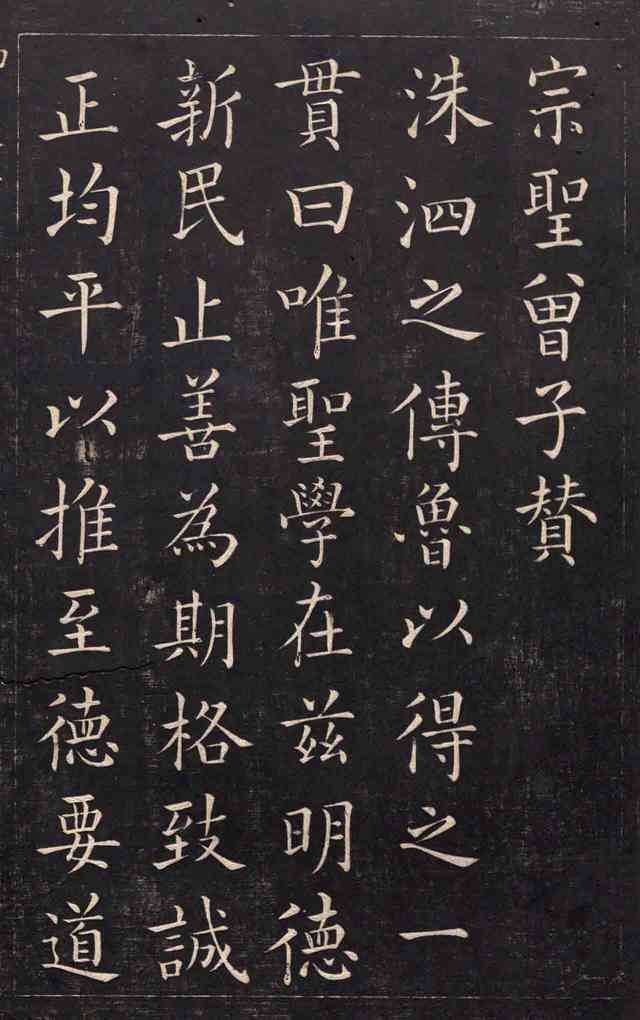 宗聖曾子賛
洙泗之傳魯以得之一
貫曰唯聖學在兹明德
新民止善為期格致誠
正均平以推至德要道